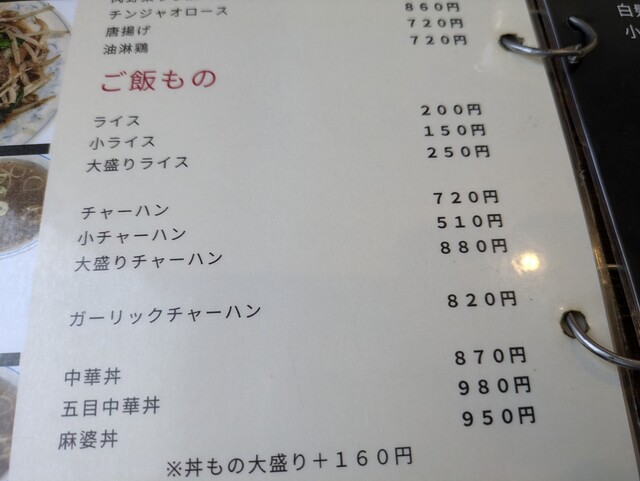 チンジャオロース 860円
唐揚げ 720円
油淋鶏 720円
ご飯もの
ライス 200円
小ライス 150円
大盛りライス 250円
チャーハン 720円
小チャーハン 510円
大盛りチャーハン 880円
ガーリックチャーハン 820円
中華丼 870円
五目中華丼 980円
麻婆丼 950円
※丼もの大盛り＋160円